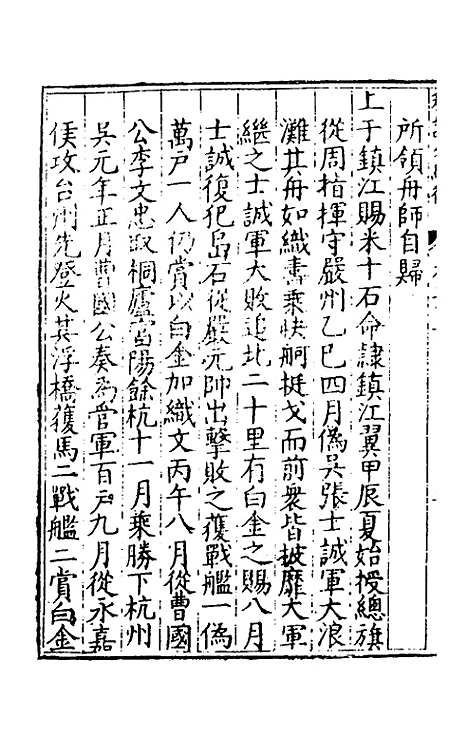 所領舟師自歸
上于鎮江賜米十石命隸鎮江翼甲辰夏始授總旗
從周指揮守嚴州乙巳四月偽吳張士誠軍大浪
灘其舟如織壽乘快舸挺戈而前衆皆披靡大軍
繼之士誠軍大敗追北二十里有白金之賜八月
士誠復犯島石從嚴元帥出擊敗之獲戰艦一偽
萬戸一人仍賞以白金加織文丙午八月從曹國
公李文忠取桐廬富陽餘杭十一月乘勝下杭州
吴元年正月曹國公奏為管軍百戸九月從永嘉
侯攻台州先登火其浮橋獲馬二戰艦二賞白金